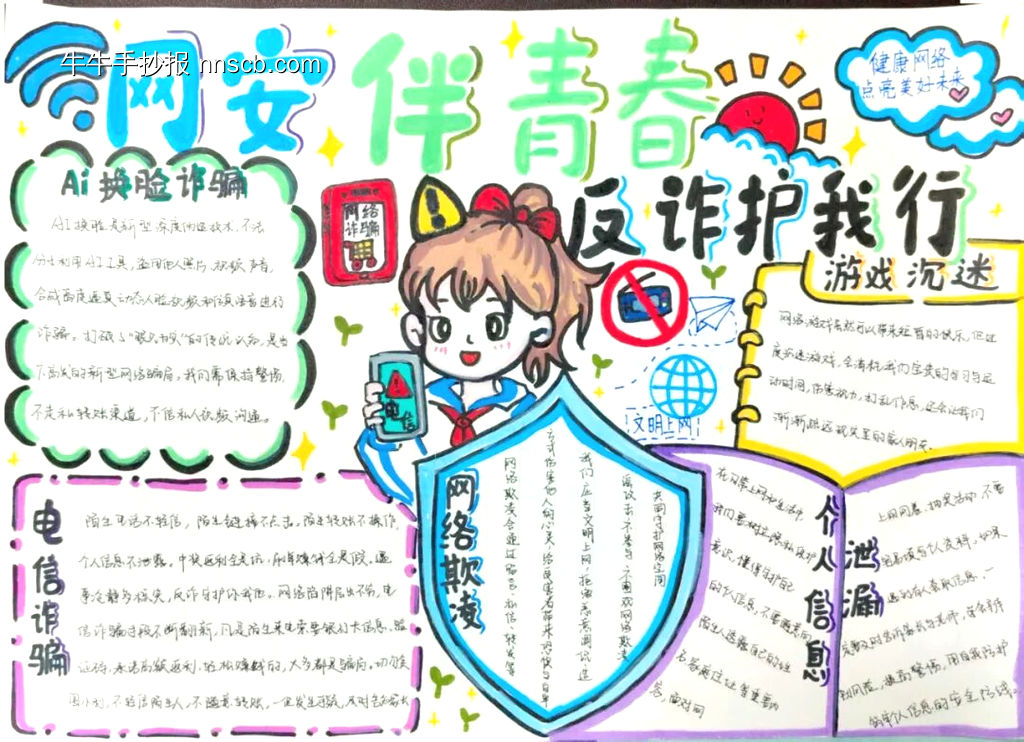 牛牛手抄报 nnscb.com
网安伴青春
反诈护我行
健康网络
点亮美好未来
Ai换脸诈骗
AI换脸是新型深度伪造技术,不法
分子利用AI工具,盗用他人照片、视频、声音,
合成高度逼真动态人脸视频和语音进行
诈骗。打破了"眼见为实"的传统认知,是当
下高发的新型网络骗局。我们需保持警惕,
不走私转账渠道,不信私人视频沟通。
网络
诈骗
电信
文明上网
游戏沉迷
网络游戏虽然可以带来短暂的快乐,但过
度沉迷游戏,会消耗我们宝贵的学习与运
动时间,伤害视力,打乱作息,还会让我们
渐渐疏远现实里的家人朋友。
电信诈骗
陌生电话不轻信,陌生链接不点击。陌生转账不操作,
个人信息不泄露。中奖返利全是坑,刷单赚钱全是假,遇
事冷静多核实,反诈守护你我他。网络陷阱层出不穷,电
信诈骗手段不断翻新,凡是陌生来电索要银行卡信息、验
证码,承诺高额返利、轻松赚钱的,大多都是骗局。切勿贪
图小利,不轻信陌生人,不随意转账,一旦发生
网络欺凌
网络欺凌会通过
方式伤害他人的心灵,给受害者带来恐惧与自卑
我们应当文明上网,拒绝恶意调侃、造
共同守护网络空间
个人信息
泄漏
在日常上网和生活中,
我们要树立隐私保护
意识,懂得守护自己
的个人信息,不要随意向
陌生人透露自己的姓
上网问卷、抽奖活动,不要
遇到有人索取信息,一
定要及时告诉家长与老师,学会辨
别风险,提高警惕,用自我防护
筑牢个人信息的安全防线。